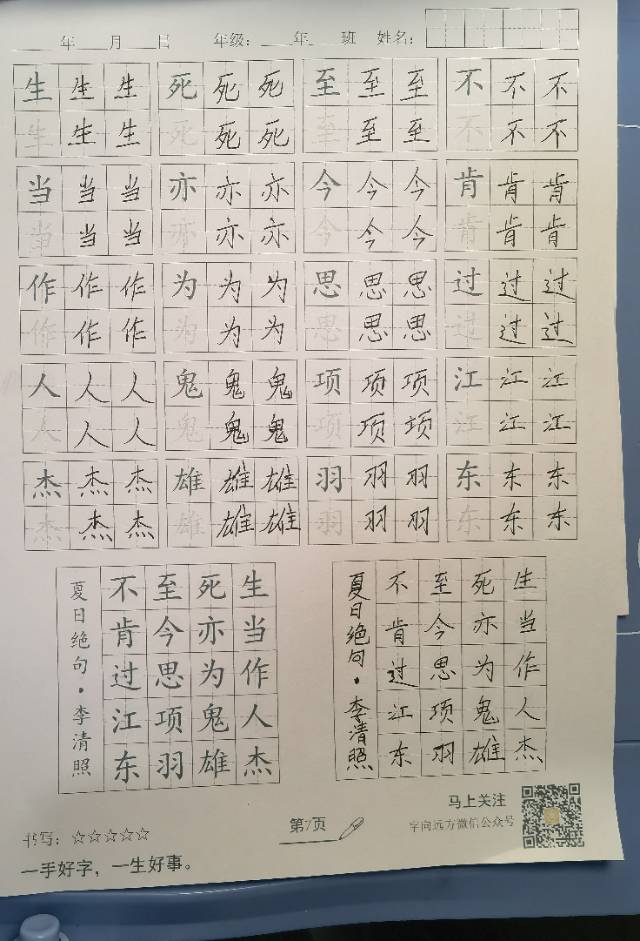 年 月 日 年级： 年 班 姓名：
生 生 生 死 死 死 至 至 至 不 不 不
生 生 生 死 死 死 至 至 至 不 不 不
当 当 当 亦 亦 亦 今 今 今 肯 肯 肯
当 当 当 亦 亦 亦 今 今 今 肯 肯 肯
作 作 作 为 为 为 思 思 思 过 过 过
作 作 作 为 为 为 思 思 思 过 过 过
人 人 人 鬼 鬼 鬼 项 项 项 江 江 江
人 人 人 鬼 鬼 鬼 项 项 项 江 江 江
杰 杰 杰 雄 雄 雄 羽 羽 羽 东 东 东
杰 杰 杰 雄 雄 雄 羽 羽 羽 东 东 东
生当作人杰
死亦为鬼雄
至今思项羽
不肯过江东
夏日绝句·李清照
生当作人杰
死亦为鬼雄
至今思项羽
不肯过江东
夏日绝句·李清照
马上关注
字向远方微信公众号
第7页
书写：☆☆☆☆☆
一手好字，一生好事。